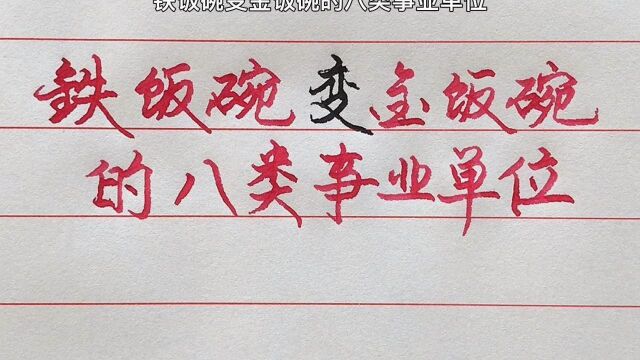 铁饭碗变金饭碗的八类事业单位
鉄饭碗变金饭碗
的八类事业单位